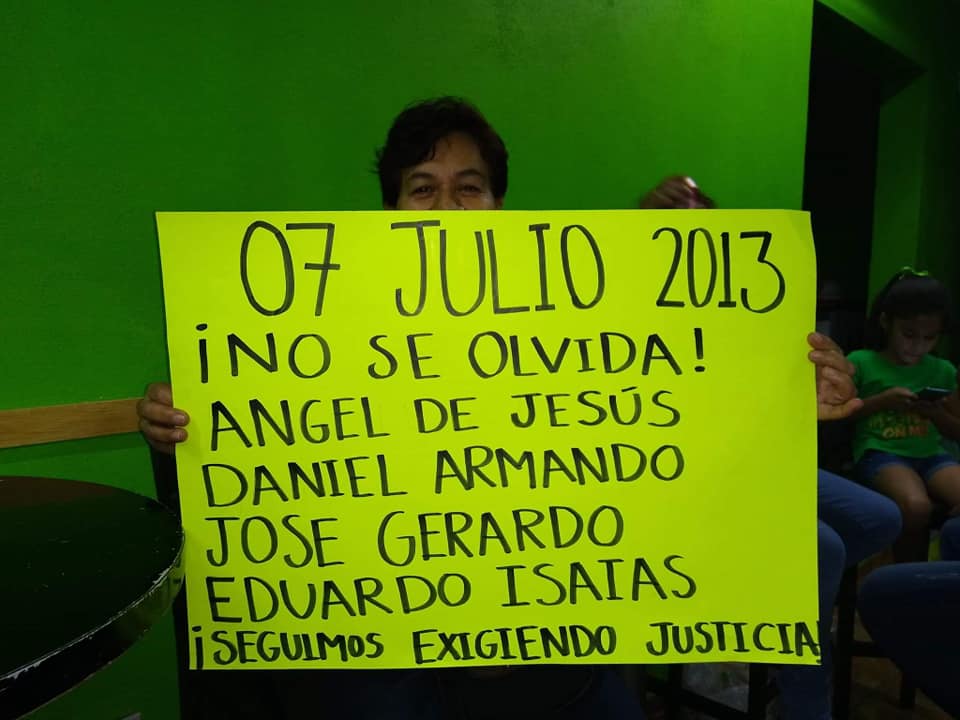 07 JULIO 2013
¡NO SE OLVIDA!
ANGEL DE JESÚS
DANIEL ARMANDO
JOSE GERARDO
EDUARDO ISAIAS
¡SEGUIMOS EXIGIENDO JUSTICIA!
ON ME